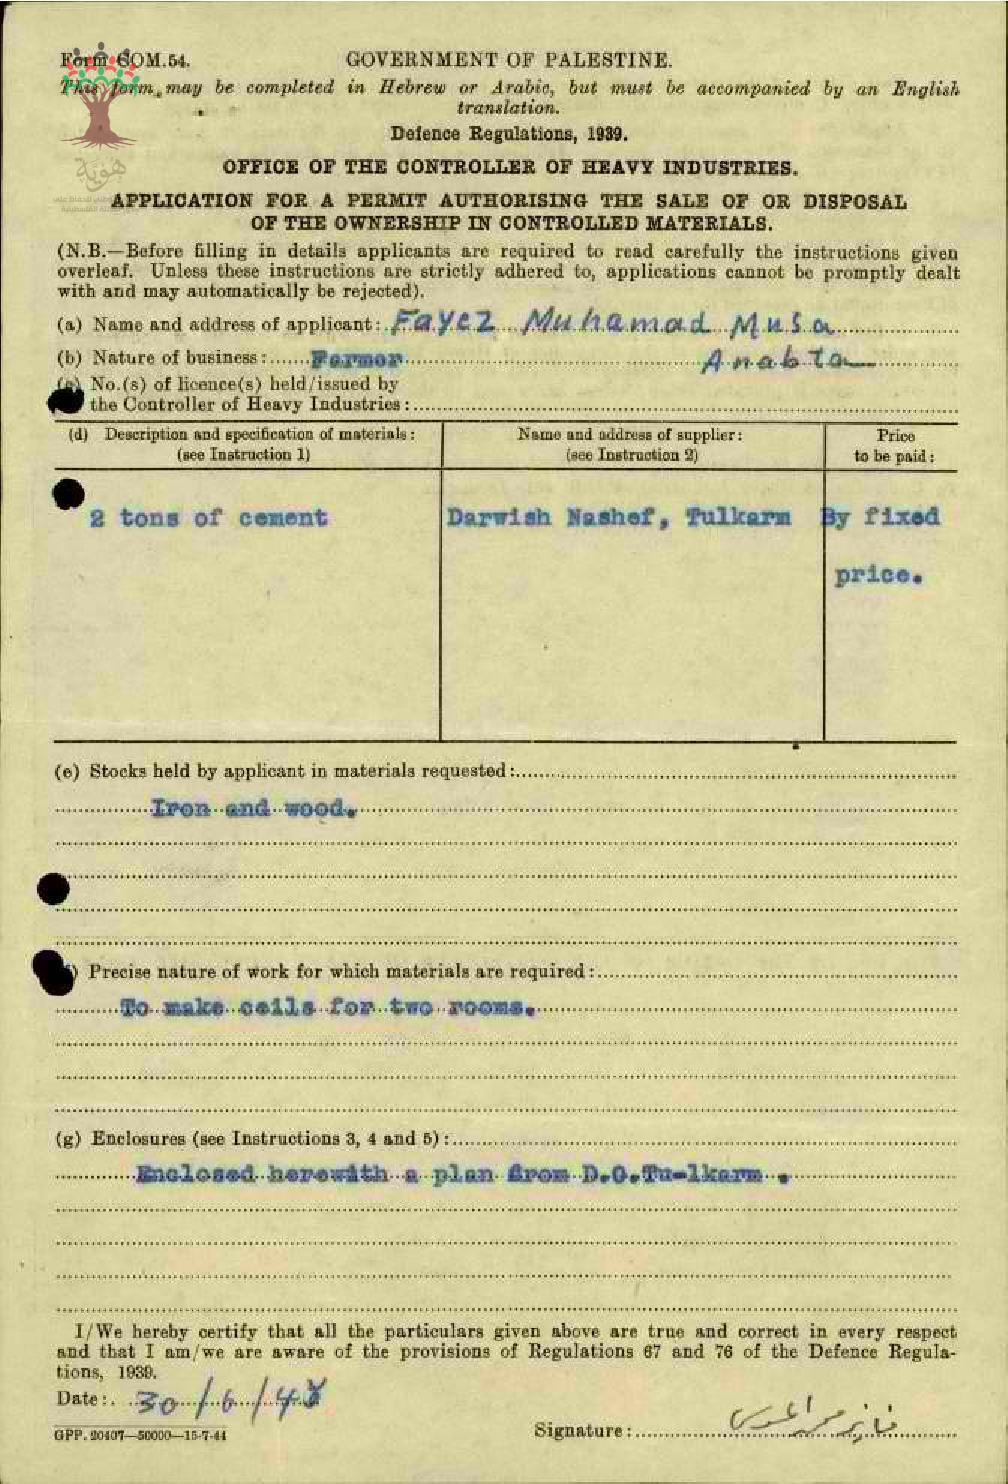 Form COM.54.
GOVERNMENT OF PALESTINE.
This form may be completed in Hebrew or Arabic, but must be accompanied by an English
translation.
Defence Regulations, 1939.
هوية
OFFICE OF THE CONTROLLER OF HEAVY INDUSTRIES.
APPLICATION FOR A PERMIT AUTHORISING THE SALE OF OR DISPOSAL
OF THE OWNERSHIP IN CONTROLLED MATERIALS.
(N.B.—Before filling in details applicants are required to read carefully the instructions given
overleaf. Unless these instructions are strictly adhered to, applications cannot be promptly dealt
with and may automatically be rejected).
(a) Name and address of applicant: Fayez Muhamad Musa
(b) Nature of business: Farmer Anabta
No.(s) of licence(s) held/issued by
the Controller of Heavy Industries:
(d) Description and specification of materials: Name and address of supplier: Price
(see Instruction 1) (see Instruction 2) to be paid:
2 tons of cement Darwish Nashef, Tulkarm By fixed
price.
(e) Stocks held by applicant in materials requested:
Iron and wood.
Precise nature of work for which materials are required:
To make ceils for two rooms.
(g) Enclosures (see Instructions 3, 4 and 5):
Enclosed herewith a plan from D.O.Tu-lkarm .
I/We hereby certify that all the particulars given above are true and correct in every respect
and that I am/we are aware of the provisions of Regulations 67 and 76 of the Defence Regula-
tions, 1939.
Date: 30/6/4
Signature: فايز محمد الموسى
GPP. 20407—50000—15-7-44